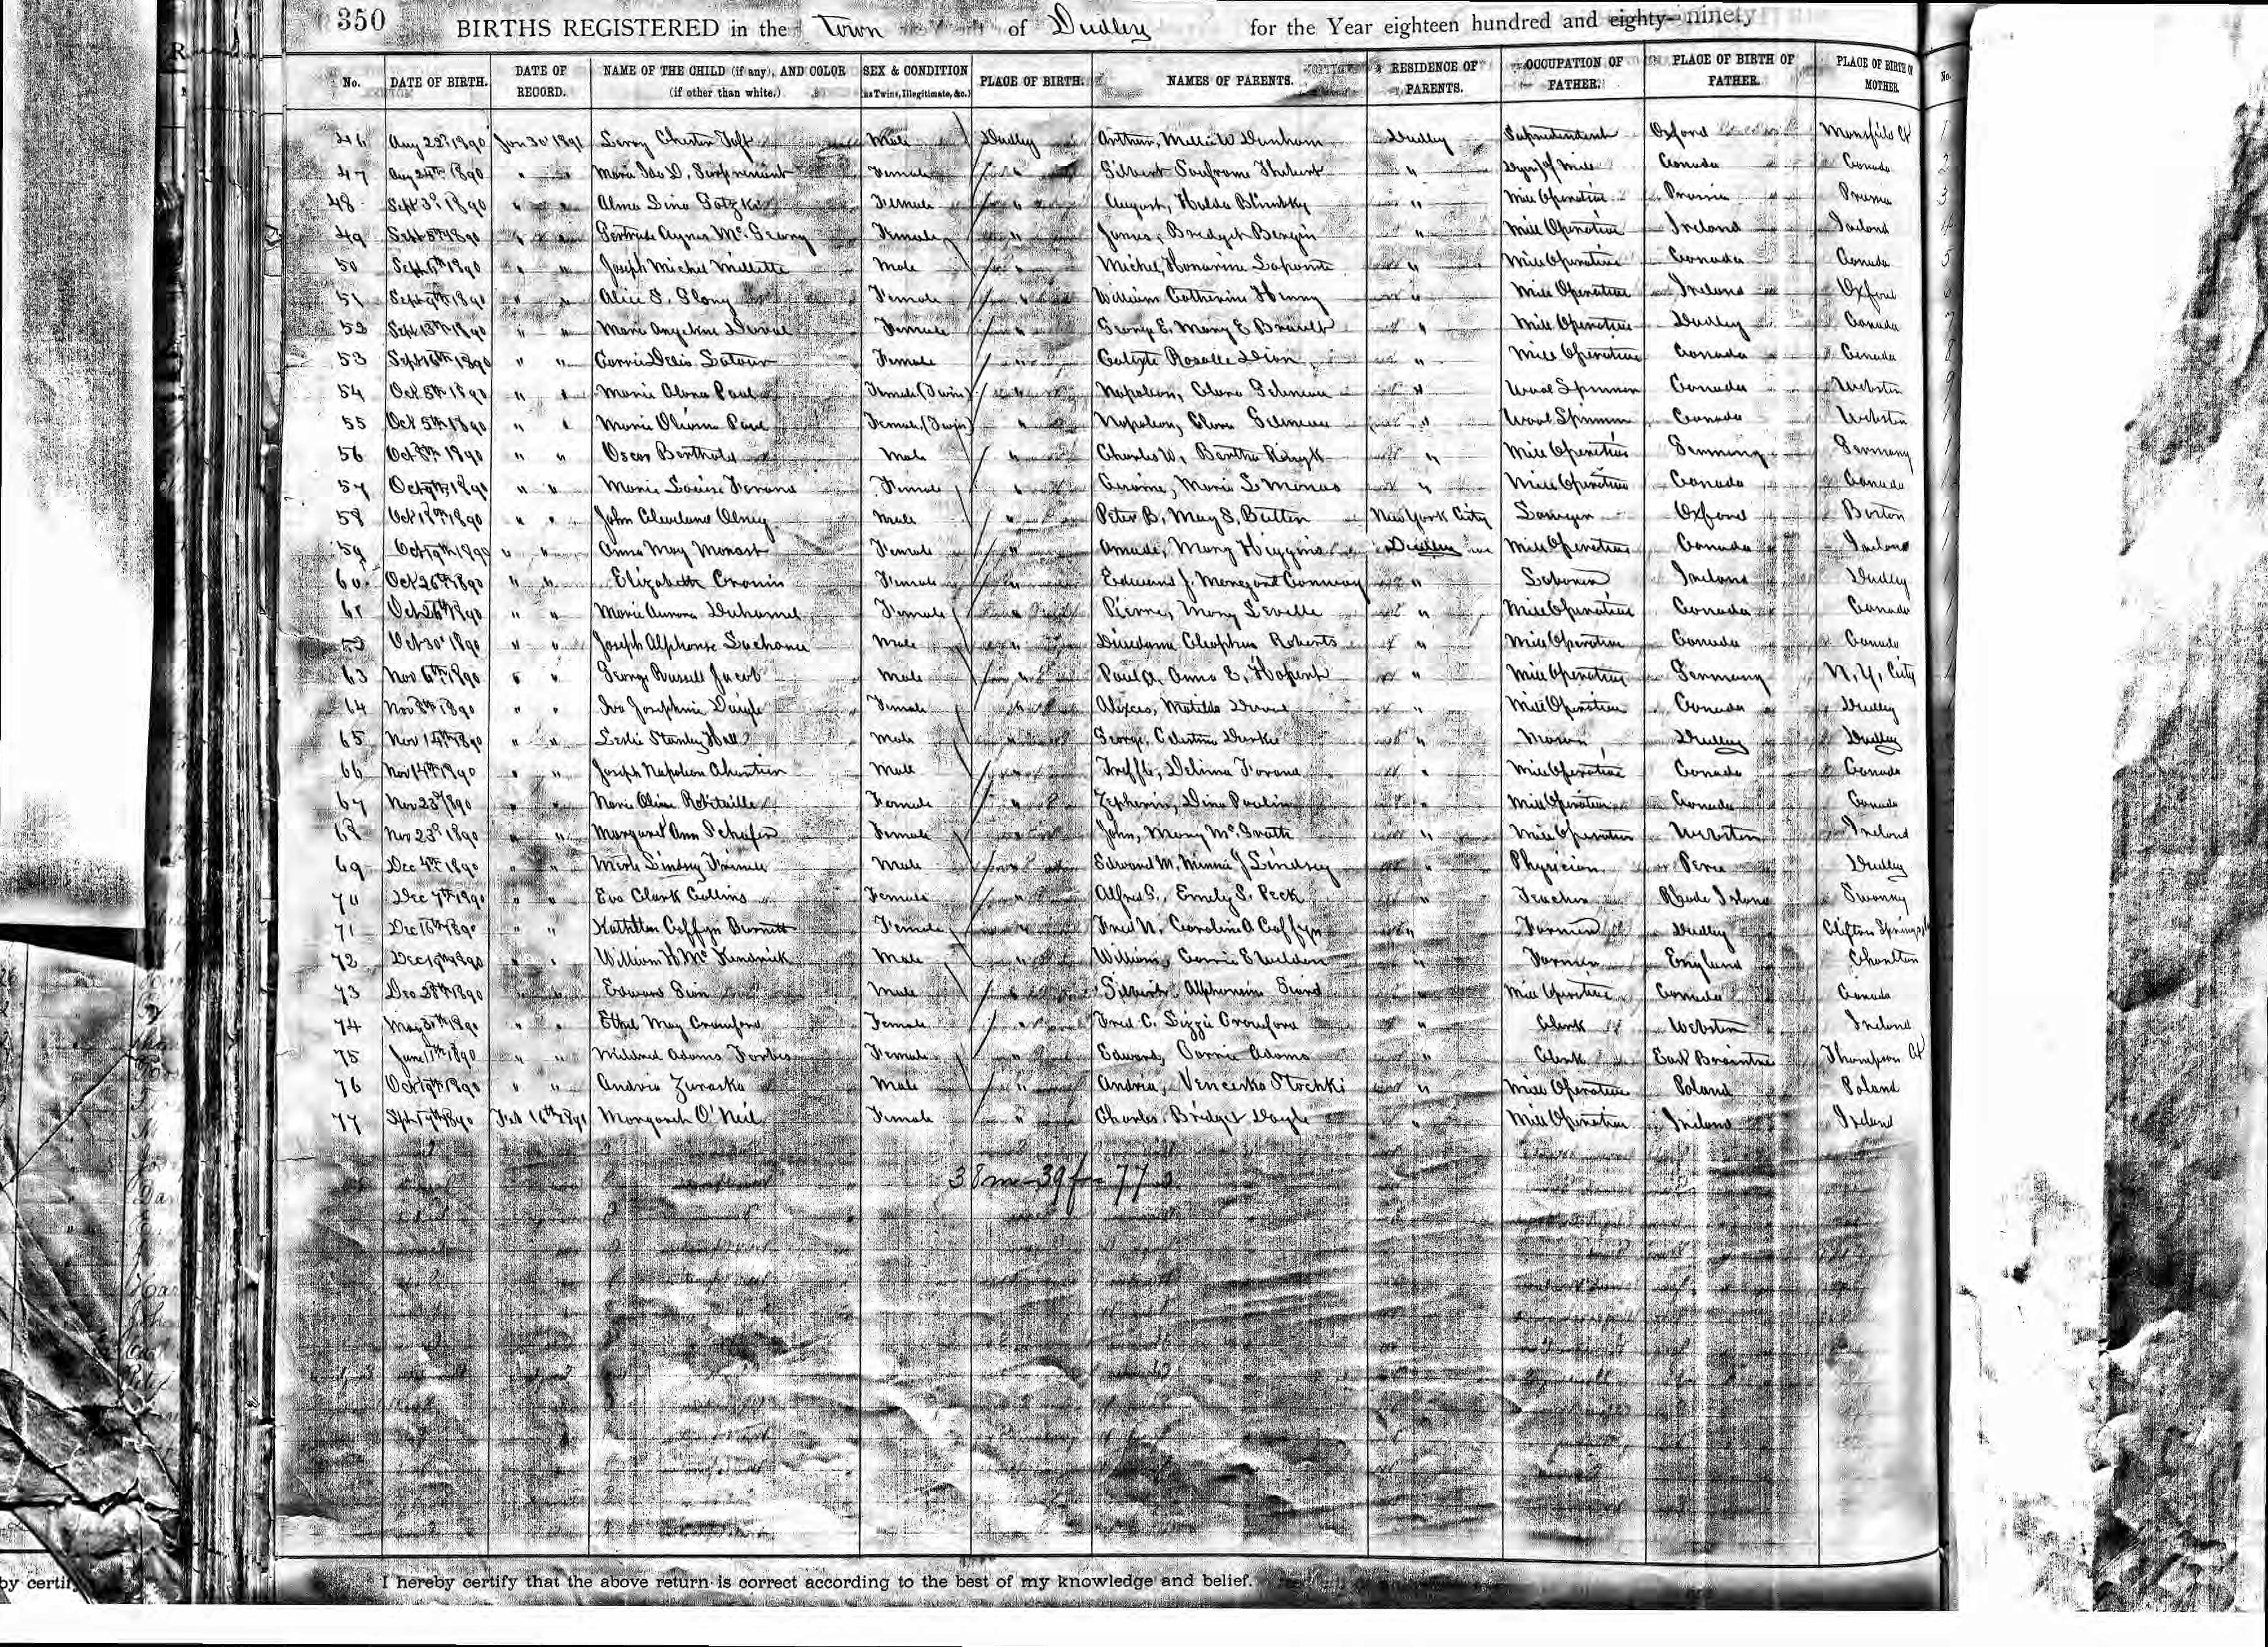 350 BIRTHS REGISTERED in the Town of Dudley for the Year eighteen hundred and eighty- ninety
No. DATE OF BIRTH. DATE OF RECORD. NAME OF THE CHILD (if any), AND COLOR (if other than white.) SEX & CONDITION (as Twins, Illegitimate, &c.) PLACE OF BIRTH. NAMES OF PARENTS. RESIDENCE OF PARENTS. OCCUPATION OF FATHER. PLACE OF BIRTH OF FATHER. PLACE OF BIRTH OF MOTHER No.
46 Aug 22d 1890 Jan 30 1891 Leroy Chester Taft Male Dudley Arthur, Millie W Dunham Dudley Superintendent Oxford Mansfield Ct
47 Aug 24th 1890 " " Maria Ida D. Surprenant Female " Gilbert " Canada Canada
48 Sept 3d 1890 " " Alma Lina Female " August, Hulda " Mill Operative Prussia Prussia
49 Sept 5th 1890 " " Gertrude Agnes Mc Female " James, Bridget Bergin " Mill Operative Ireland Ireland
50 Sept 6th 1890 " " Joseph Michel Millette Male " Michel, Honorine Lapointe " Mill Operative Canada Canada
51 Sept 9th 1890 " " Alice S. Female " William Catherine Henry " Mill Operative Ireland Oxford
52 Sept 13th 1890 " " Marie Angeline Duval Female " George E. Mary E Brault " Mill Operative Dudley Canada
53 Sept 16th 1890 " " Carrie Delia Latour Female " Calixte Rosalie Dion " Mill Operative Canada Canada
54 Oct 5th 1890 " " Marie Alona Paul Female (Twin) " Napoleon, Clara " Wool Spinner Canada Webster
55 Oct 5th 1890 " " Marie Olivina Paul Female (Twin) " Napoleon, Clara " Wool Spinner Canada Webster
56 Oct 8th 1890 " " Oscar Berthold Male " Charles W, Bertha " Mill Operative Germany Germany
57 Oct 9th 1890 " " Marie Louise Forand Female " Marie L " Mill Operative Canada Canada
58 Oct 18th 1890 " " John Cleveland Olney Male " Peter B, Mary S. Butler New York City Lawyer Oxford Boston
59 Oct 19th 1890 " " Anna May Monast Female " Amade, Mary Higgins Dudley Mill Operative Canada Ireland
60 Oct 26th 1890 " " Elizabeth Cronin Female " Edward J. Margaret Conway " Laborer Ireland Dudley
61 Oct 26th 1890 " " Marie Aurora Duhamel Female " Pierre, Mary Leveille " Mill Operative Canada Canada
Oct 30 1890 " " Joseph Alphonse Lachance Male " Cleophire Roberts " Mill Operative Canada Canada
63 Nov 6th 1890 " " George Russell Jacob Male " Paul A, Anna E. " Mill Operative Germany N.Y. City
64 Nov 8th 1890 " " Iva Josephine Daigle Female " Matilda Duval " Mill Operative Canada Dudley
65 Nov 14th 1890 " " Leslie Stanley Hall Male " George, Celestina " Mason Dudley Dudley
66 Nov 14th 1890 " " Joseph Napoleon Male " Treffle, Delima Forand " Mill Operative Canada Canada
67 Nov 23d 1890 " " Marie Olivine Robitaille Female " Zepherin, Dina Poulin " Mill Operative Canada Canada
68 Nov 23d 1890 " " Margaret Ann Schafer Female " John, Mary McGrath " Mill Operative Webster Ireland
69 Dec 4th 1890 " " Merle Lindsey Male " Edward M, Minnie J Lindsey " Physician Peru Dudley
70 Dec 7th 1890 " " Eva Clark Collins Female " Alfred G., Emily S. Peck " Teacher Rhode Island
71 Dec 16th 1890 " " Kathleen Coffyn Burnett Female " Fred N. Caroline A Coffyn " Farmer Dudley Clifton Springs
72 Dec 19th 1890 " " William H Mc Kendrick Male " William, Carrie Sheldon " Farmer England Charlton
73 Dec 28th 1890 " " Edward Male " " Mill Operative Canada Canada
74 May 31th 1890 " " Ethel May Crawford Female " Fred C. Lizzie Crawford " Clerk Webster Ireland
75 June 11th 1890 " " Mildred Adams Forbes Female " Edward, Carrie Adams " Clerk East Braintree Thompson Ct
76 Oct 19th 1890 " " Andria Zuraska Male " Andria, Stochki " Mill Operative Poland Poland
77 Sept 17th 1890 Feb 16th 1891 Margaret O'Neil Female " Charles, Bridget Doyle " Mill Operative Ireland Ireland
38m-39f-77
I hereby certify that the above return is correct according to the best of my knowledge and belief.
by certif